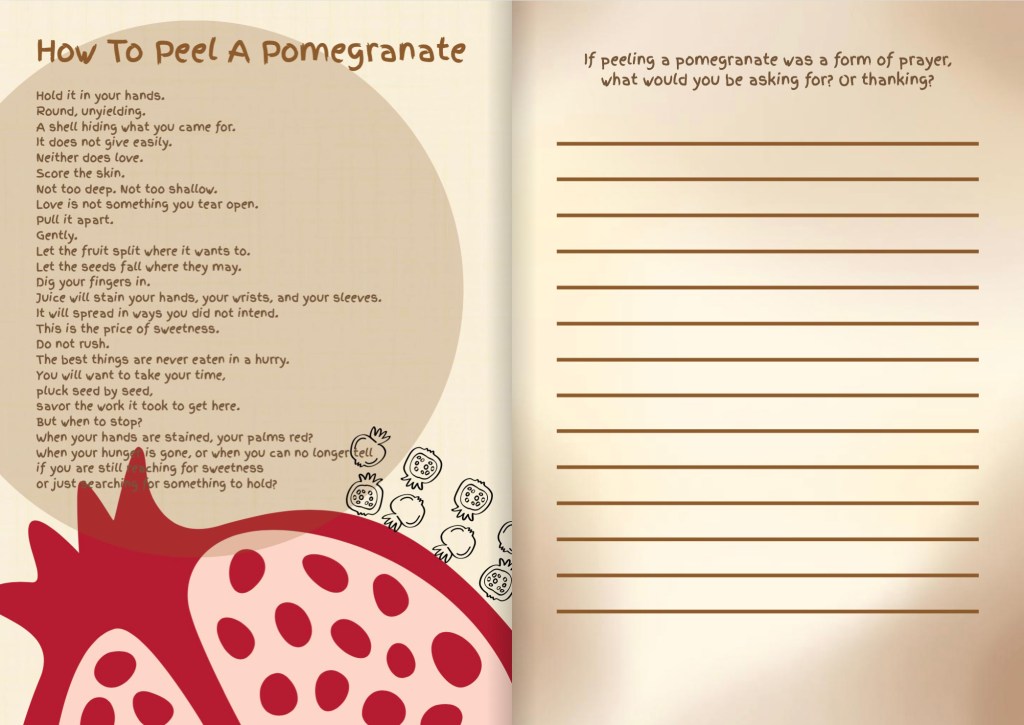 How To Peel A Pomegranate
Hold it in your hands.
Round, unyielding.
A shell hiding what you came for.
It does not give easily.
Neither does love.
Score the skin.
Not too deep. Not too shallow.
Love is not something you tear open.
Pull it apart.
Gently.
Let the fruit split where it wants to.
Let the seeds fall where they may.
Dig your fingers in.
Juice will stain your hands, your wrists, and your sleeves.
It will spread in ways you did not intend.
This is the price of sweetness.
Do not rush.
The best things are never eaten in a hurry.
You will want to take your time,
pluck seed by seed,
savor the work it took to get here.
But when to stop?
When your hands are stained, your palms red?
When your hunger is gone, or when you can no longer tell
if you are still reaching for sweetness
or just searching for something to hold?
If peeling a pomegranate was a form of prayer,
what would you be asking for? Or thanking?